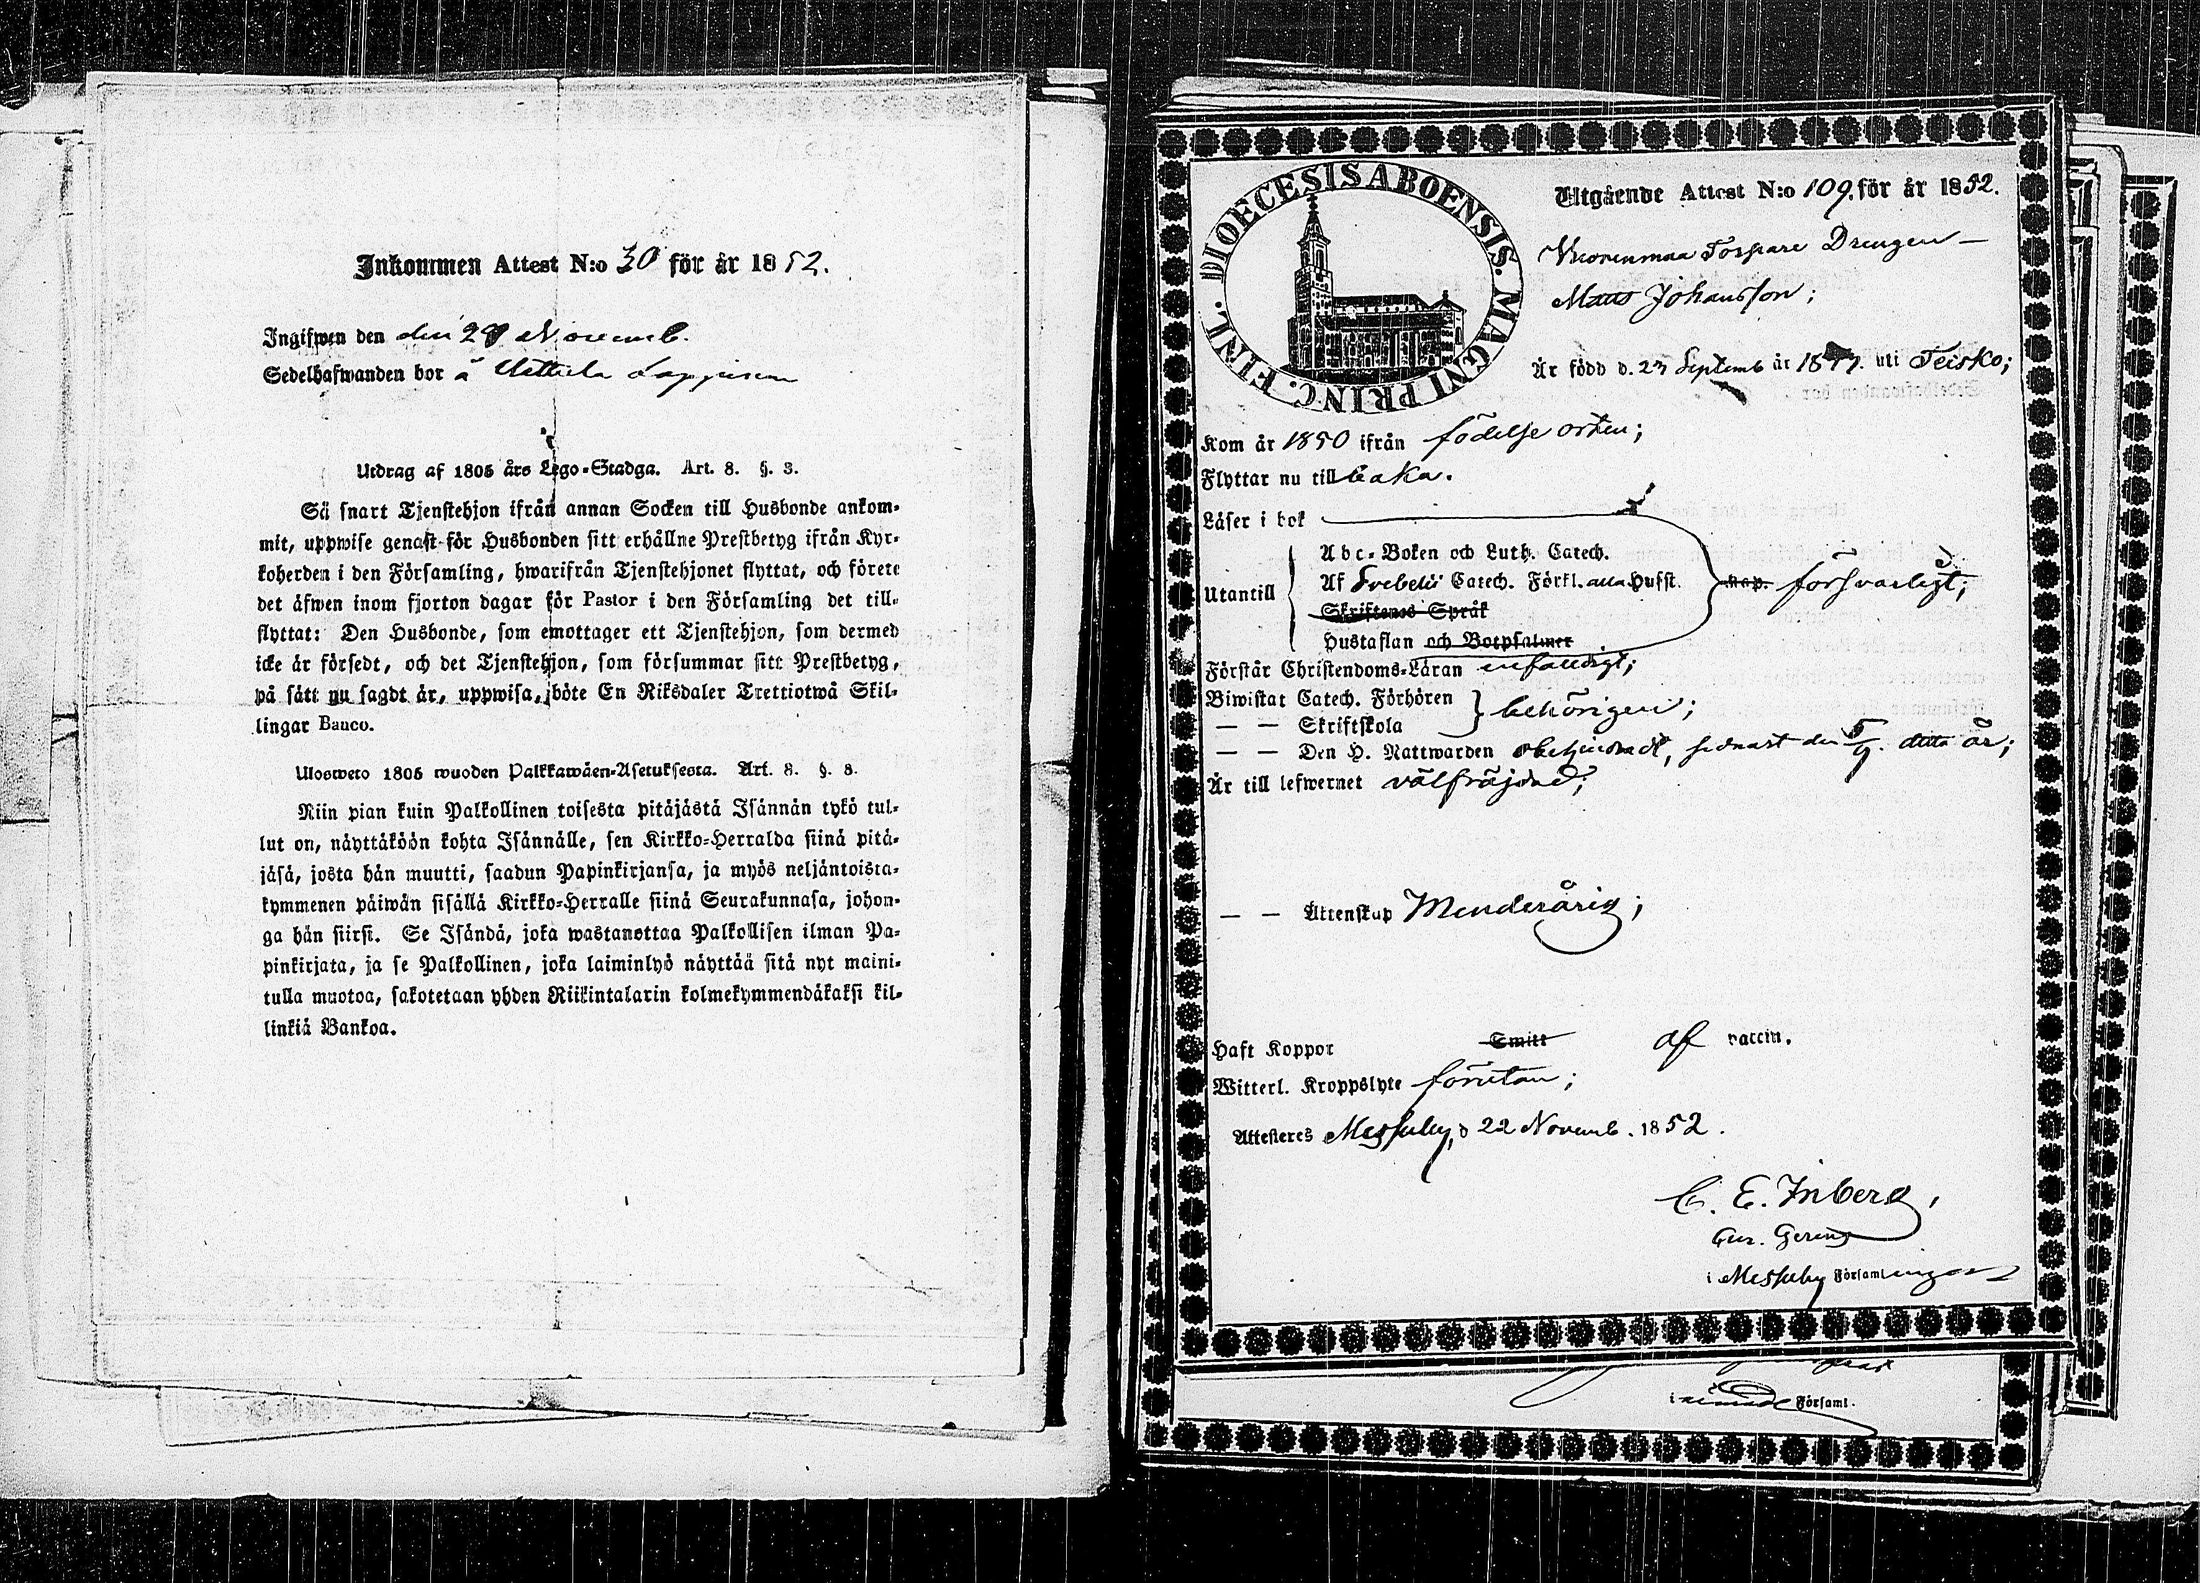 Inkommen Attest N:o 30 för år 1852.
Ingifwen den den 29 Novemb.
Sedelhafwanden bor å
Utdrag af 1805 års Lego-Stadga. Art. 8. §. 3.
Så snart Tjenstehjon ifrån annan Socken till Husbonde ankom-
mit, uppwise genast för Husbonden sitt erhållne Prestbetyg ifrån Kyr-
koherden i den Församling, hwarifrån Tjenstehjonet flyttat, och förete
det äfwen inom fjorton dagar för Pastor i den Församling det till-
flyttat: Den Husbonde, som emottager ett Tjenstehjon, som dermed
icke är försedt, och det Tjenstehjon, som försummar sitt Prestbetyg,
på sätt nu sagdt är, uppwisa, böte En Riksdaler Trettiotwå Skil-
lingar Banco.
Ulosweto 1805 wuoden Palkkawäen-Asetuksesta. Art. 8. §. 8.
Niin pian kuin Palkollinen toisesta pitäjästä Isännän tykö tul-
lut on, näyttäköön kohta Isännälle, sen Kirkko-Herralda siinä pitä-
jäsä, josta hän muutti, saadun Papinkirjansa, ja myös neljäntoista-
kymmenen päiwän sisällä Kirkko-Herralle siinä Seurakunnasa, johon-
ga hän siirsi. Se Isändä, joka wastanottaa Palkollisen ilman Pa-
pinkirjata, ja se Palkollinen, joka laiminlyö näyttää sitä nyt maini-
tulla muotoa, sakotetaan yhden Riikintalarin kolmekymmendäkaksi kil-
linkiä Bankoa.
DIOECESIS ABOENSIS. MAGNI PRINC. FINL.
Utgående Attest N:o 109. för år 1852.
Vuorenmaa Torpare Drengen —
Matts Johansson;
Är född d. 23 Septemb år 18 uti Teisko;
Kom år 1850 ifrån födelse orten;
Flyttar nu till baka.
Läser i bok
Utantill
Abc-Boken och Luth. Catech.
Af Svebelii Catech. Förkl. alla Hufst. kap. försvarligt;
Skriftenes Språk
Hustaflan och Botpsalmer
Förstår Christendoms-Läran enfaldigt;
Biwistat Catech. Förhören
— — Skriftskola behörigen;
— — Den H. Nattwarden obehindradt, sednast den 5/9. detta år;
Är till lefwernet välfräjdad;
— — Ägtenskap Minderårig;
Haft Koppor Smitt af vaccin.
Witterl. Kroppslyte förutan;
Attesteres Messuby, d 22 Novemb. 1852.
C. E. Inberg,
Cur. Gerens
i Messuby Församlingar
i Församl.